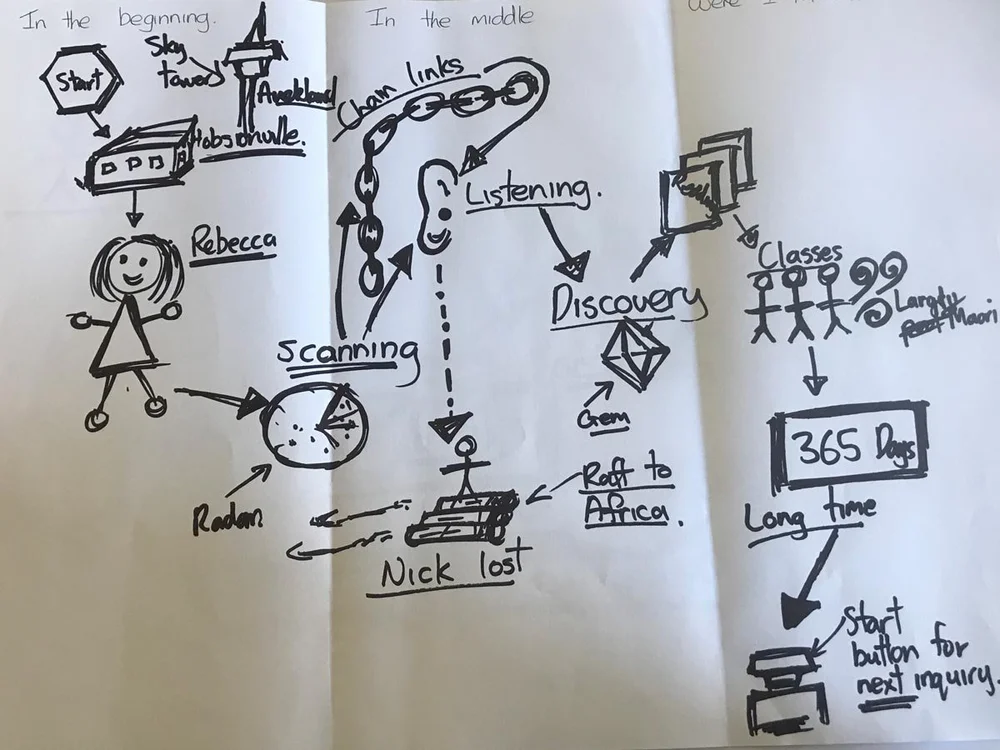 In the beginning.
Start
Sky
tower
Auckland
Hobsonville.
Rebecca
Scanning
Radar
In the middle
Chain links
Listening.
Discovery
Gem
Raft to
Africa.
Nick lost
Were I
Classes
Largely
Maori
365 Days
Long time
Start
button for
next inquiry.